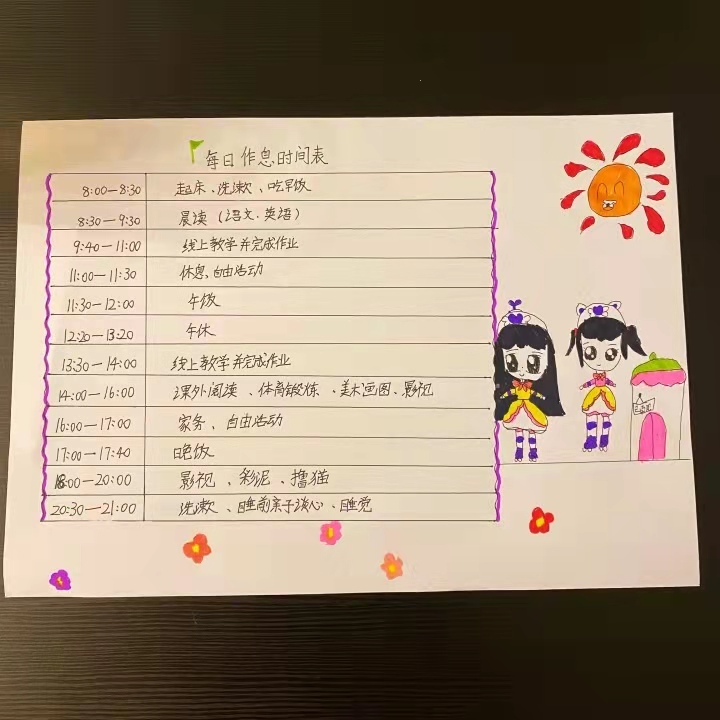 每日作息时间表
8:00—8:30 起床、洗漱、吃早饭
8:30—9:30 晨读（语文.英语）
9:40—11:00 线上教学并完成作业
11:00—11:30 休息、自由活动
11:30—12:00 午饭
12:20—13:20 午休
13:30—14:00 线上教学并完成作业
14:00—16:00 课外阅读、体育锻炼、美术画图、影视
16:00—17:00 家务、自由活动
17:00—17:40 晚饭
18:00—20:00 影视、彩泥、撸猫
20:30—21:00 洗漱、睡前亲子谈心、睡觉